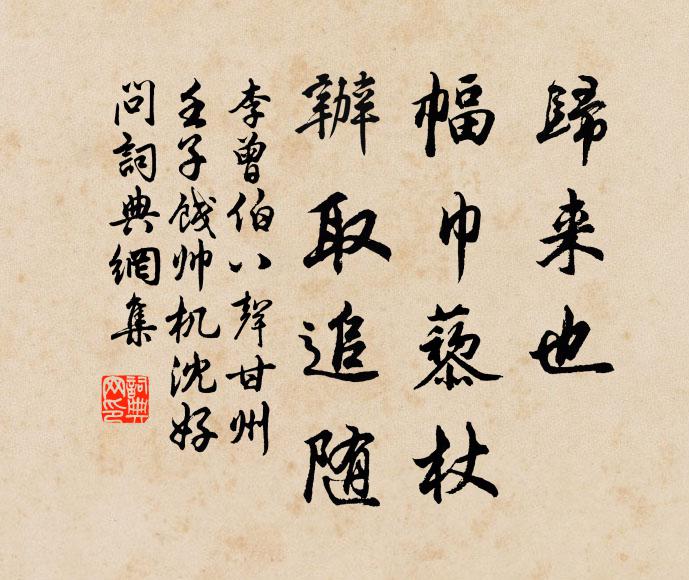 歸来也
幅巾藜杖
辦取追随
李曾伯八聲甘州
壬子餞帅机沈好
问詞典網集
詞典
网印